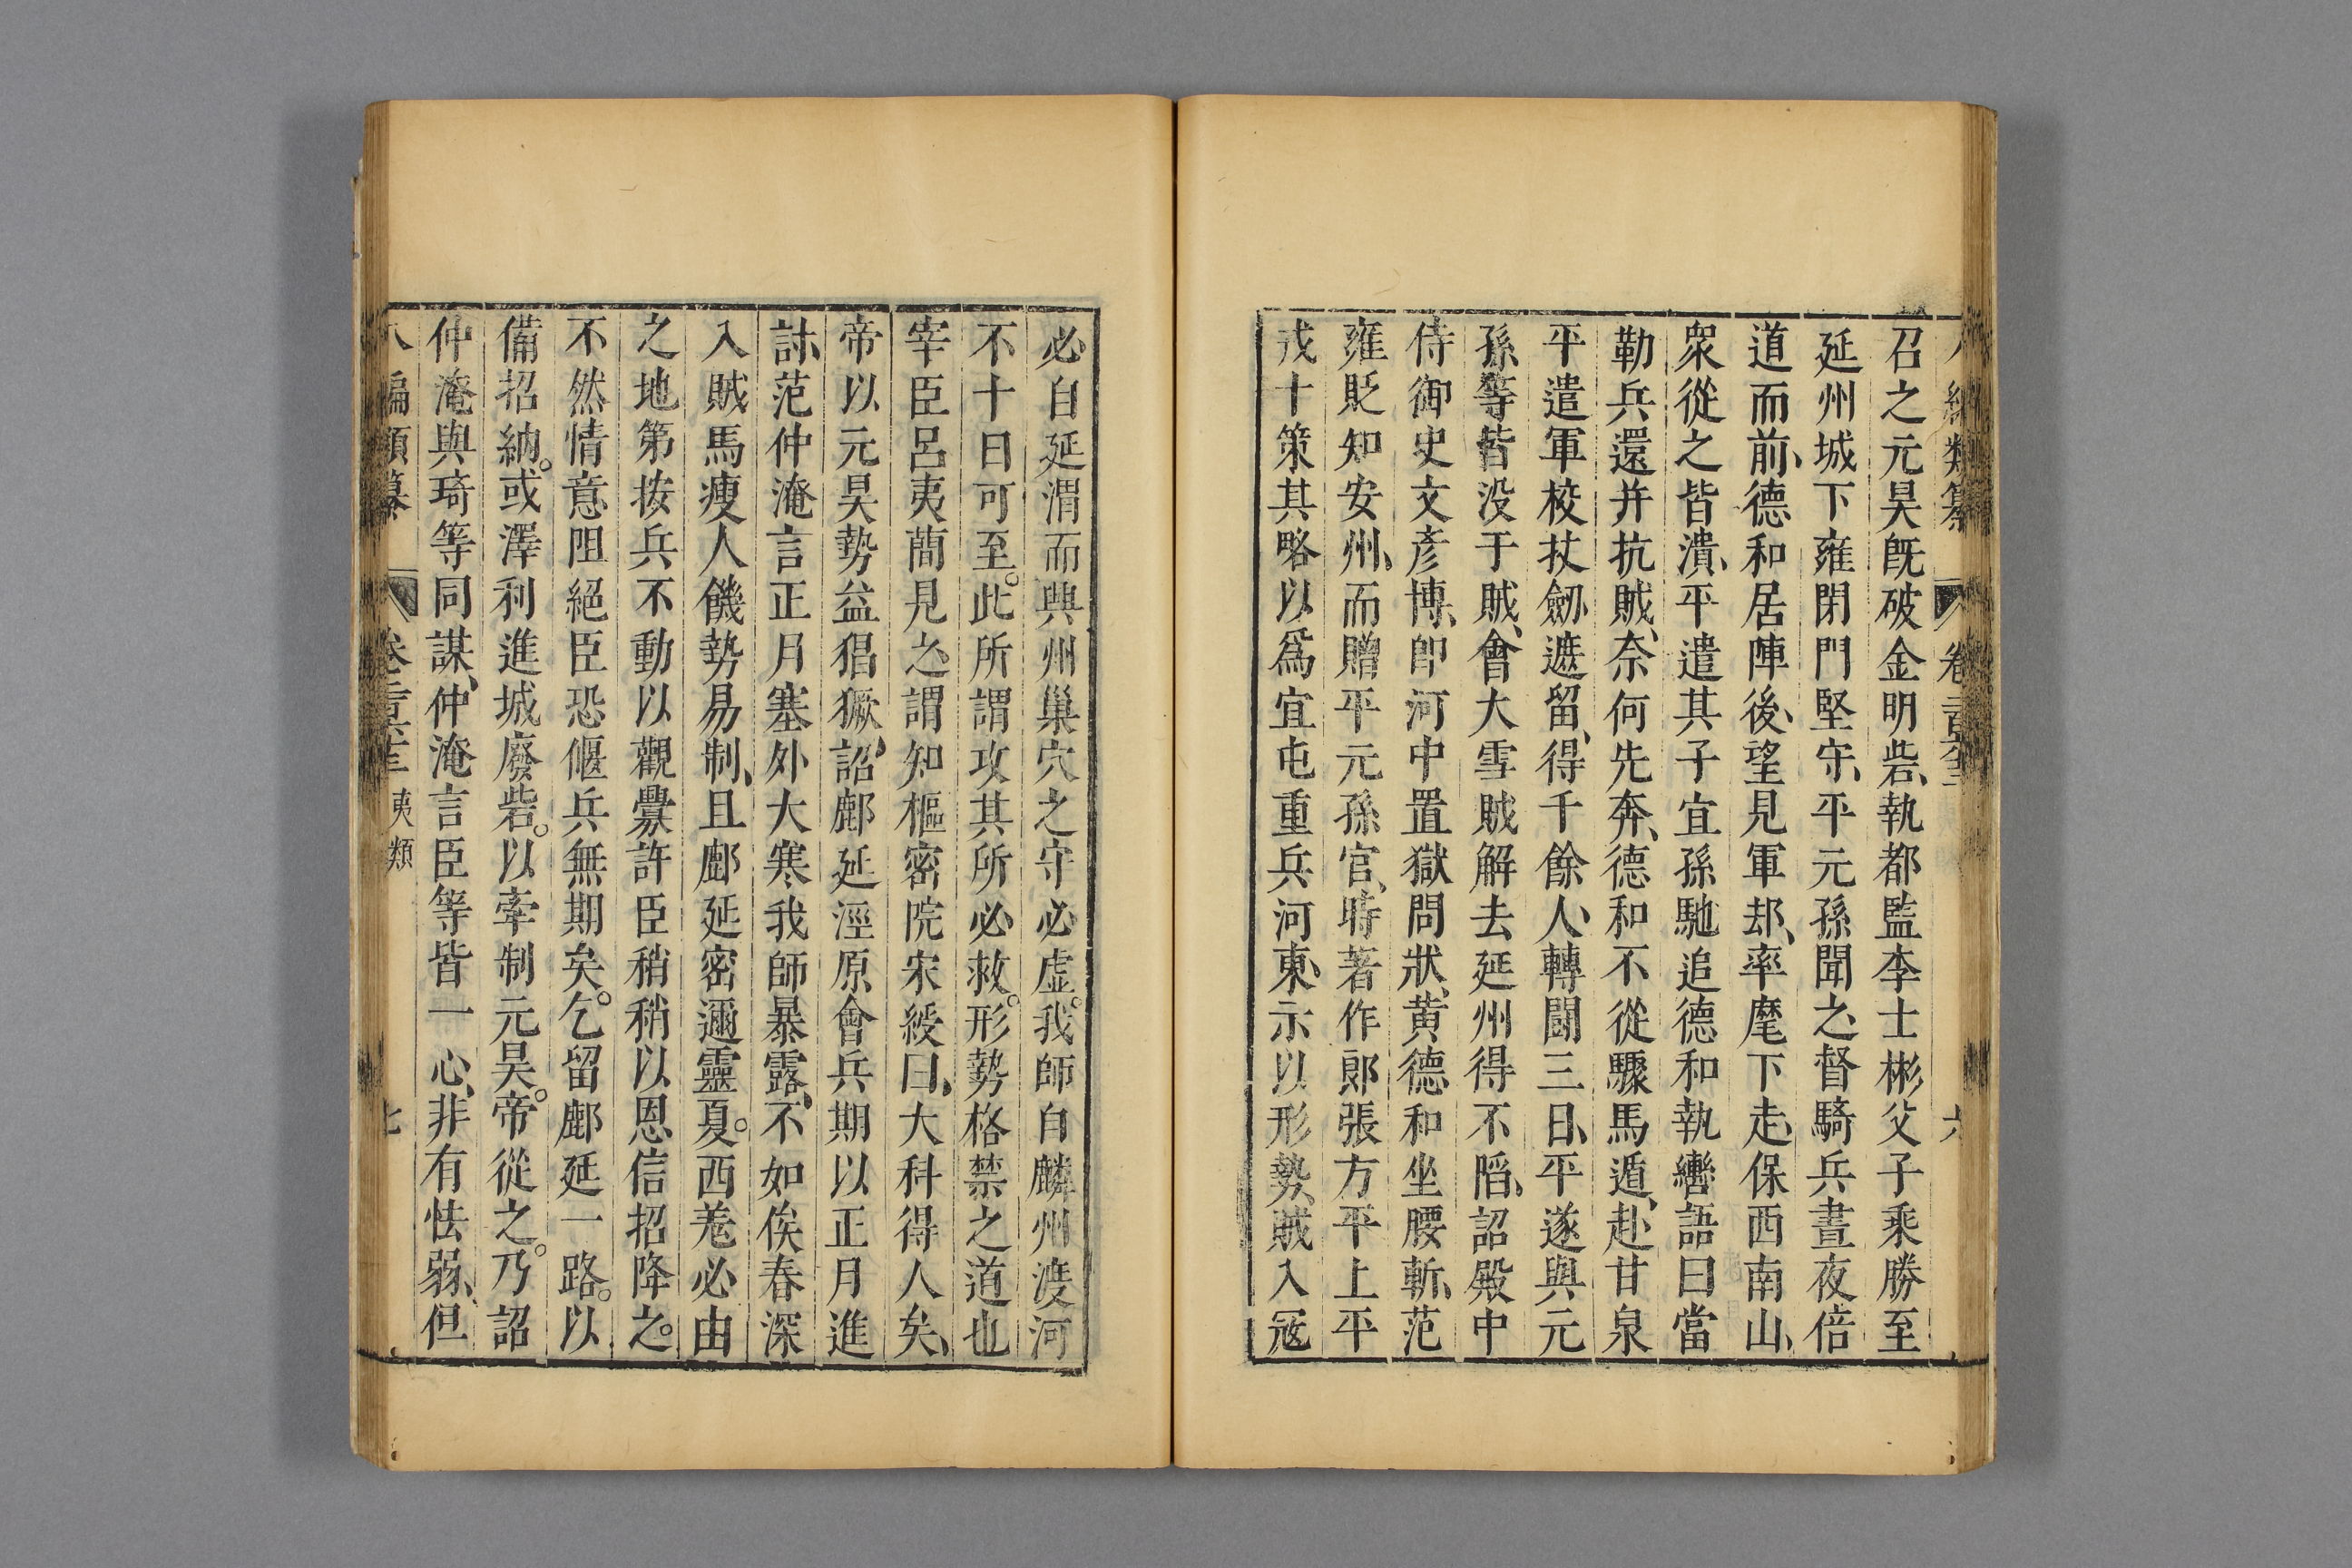 召之元昊既破金明砦、執都監李士彬父子乘勝至
延州城下雍閉門堅守、平元孫聞之、督騎兵晝夜倍
道而前、德和居陣後、望見軍却、率麾下走、保西南山、
衆從之皆潰、平遣其子宜孫馳追德和執轡語曰當
勒兵還并抗賊、奈何先奔、德和不從驟馬遁、赴甘泉
平遣軍校杖劒遮留、得千餘人、轉鬭三日、平遂與元
孫等皆没于賊、會大雪賊解去延州得不䧟、詔殿中
侍御史文彥博、即河中置獄問狀、黃德和坐腰斬、范
雍貶知安州、而贈平元孫官、時著作郎張方平上平
戎十策其略以爲宜屯重兵河東、示以形勢、賊入冦
必自延渭而興州巢穴之守必虛。我師自麟州渡河
不十日可至。此所謂攻其所必救。形勢格禁之道也
宰臣呂夷簡見之、謂知樞密院宋綬曰、大科得人矣、
帝以元昊勢益猖獗、詔鄜延涇原會兵期以正月進
討、范仲淹言正月塞外大寒我師暴露、不如俟春深
入賊馬瘦人饑勢易制、且鄜延密邇靈夏。西羌必由
之地第按兵不動以觀釁許臣稍稍以恩信招降之。
不然情意阻絕臣恐偃兵無期矣。乞留鄜延一路。以
備招納。或澤利進城廢砦。以牽制元昊。帝從之。乃詔
仲淹與琦等同謀、仲淹言臣等皆一心、非有怯弱、但
八編類纂 夷類 七